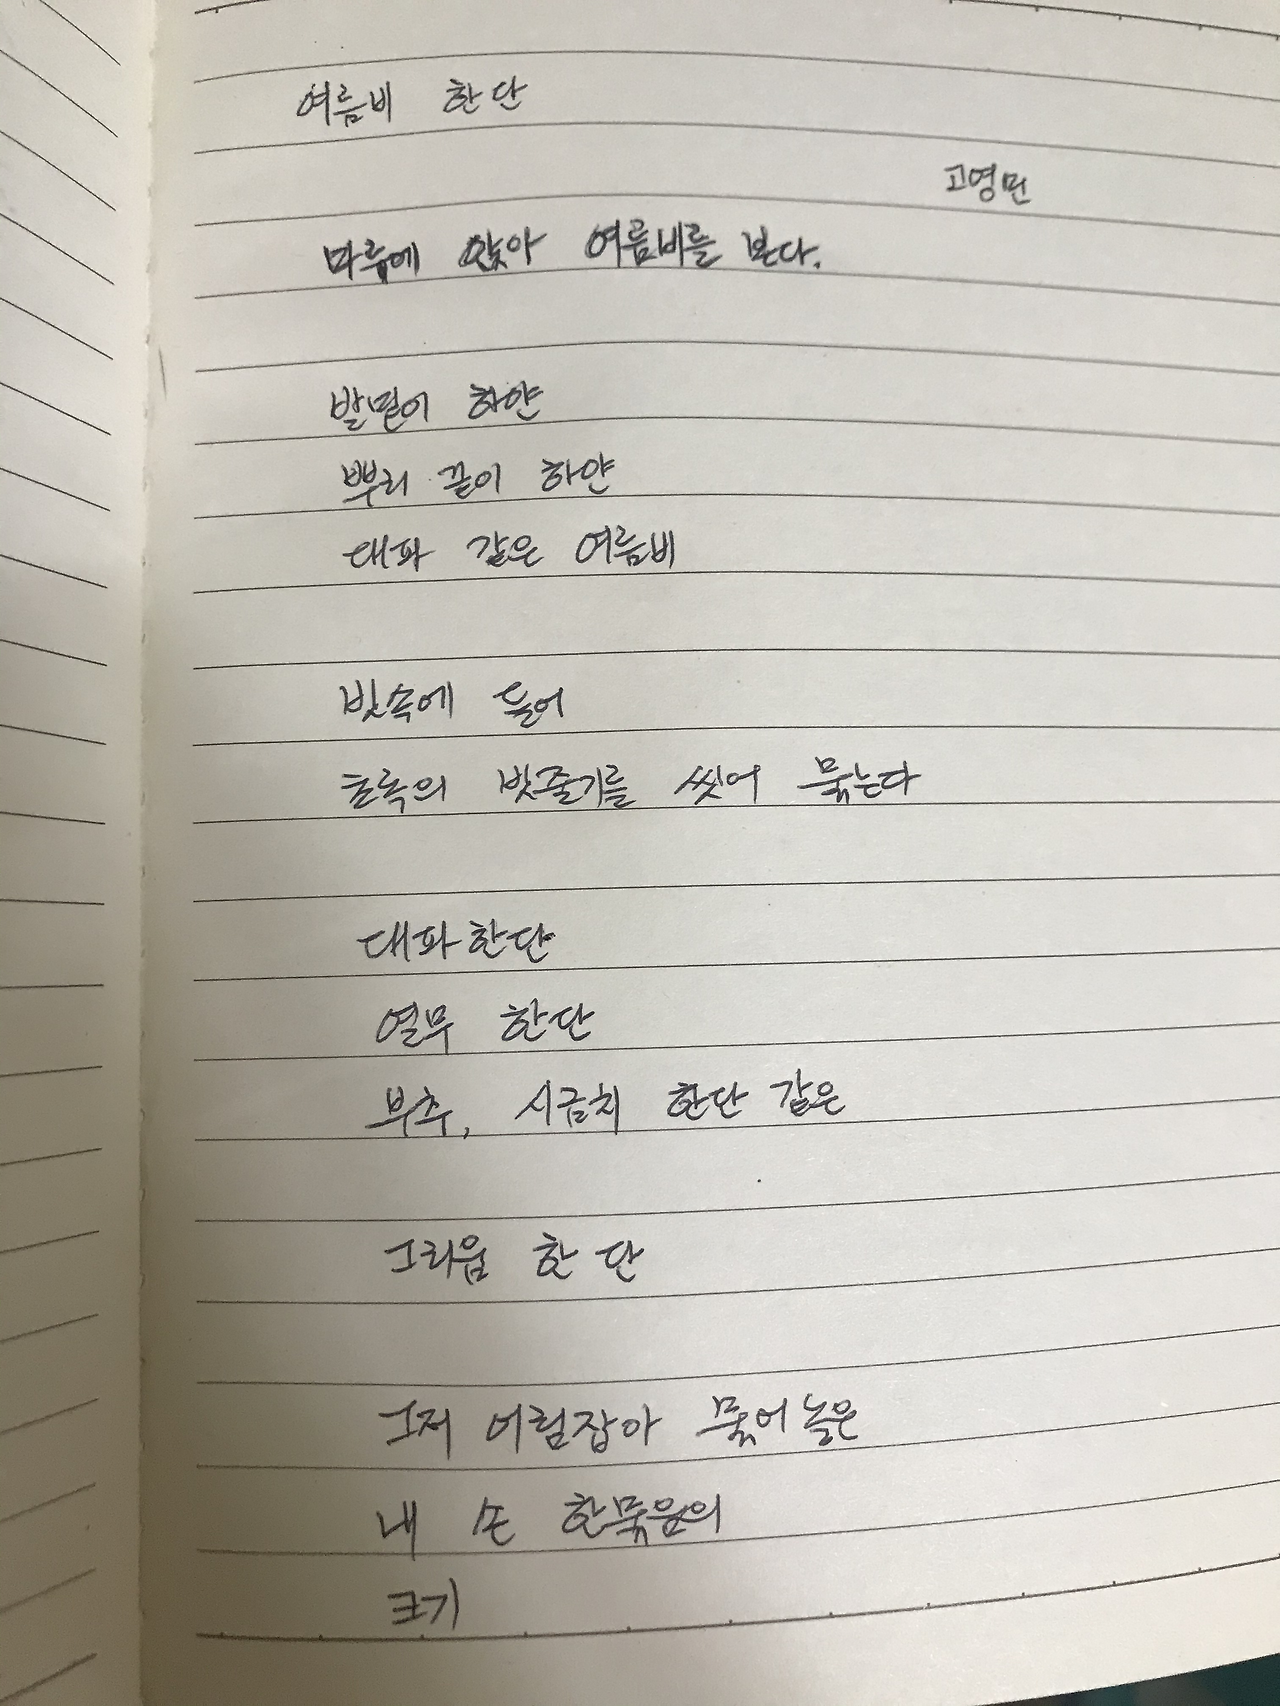 여름비 한 단
고영민
마루에 앉아 여름비를 본다.
발밑이 하얀
뿌리 끝이 하얀
대파 같은 여름비
빗속에 들어
초록의 빗줄기를 씻어 묶는다
대파 한단
열무 한단
부추, 시금치 한단 같은
그리움 한 단
그저 어림잡아 묶어놓은
내 손 한묶음의
크기